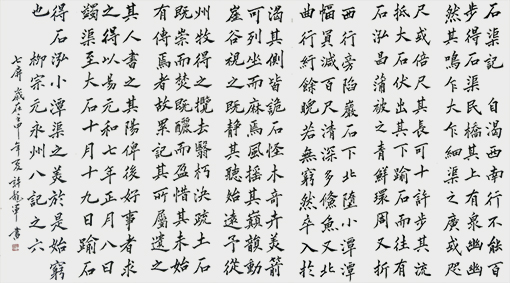 石渠記 自渴西南行不能百
步得石渠民橋其上有泉幽幽
然其鳴乍大乍細渠之廣或咫
尺或倍尺其長可十許步其流
抵大石伏出其下踰石而往有
石泓昌蒲被之青鮮環周又折
西行旁陷巖石下北墮小潭潭
幅員減百尺清深多儵魚又北
曲行紆餘睨若無窮然卒入於
渴其側皆詭石怪木奇卉美箭
可列坐而庥焉風搖其巔韻動
崖谷視之既靜其聽始遠予從
州牧得之攬去翳朽決疏土石
既崇而焚既釃而盈惜其未始
有傳焉者故累記其所屬遺之
其人書之其陽俾後好事者求
之得以易元和七年正月八日
蠲渠至大石十月十九日踰石
得石泓小潭渠之美於是始窮
也 柳宗元永州八記之六
七屏 歲在壬申年夏 許龍軍書